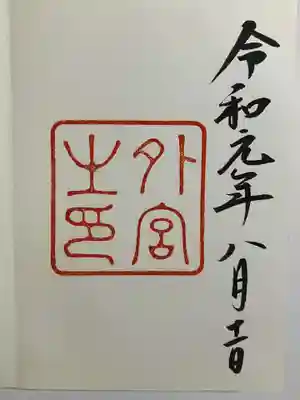 令和元年八月
外宮
之印